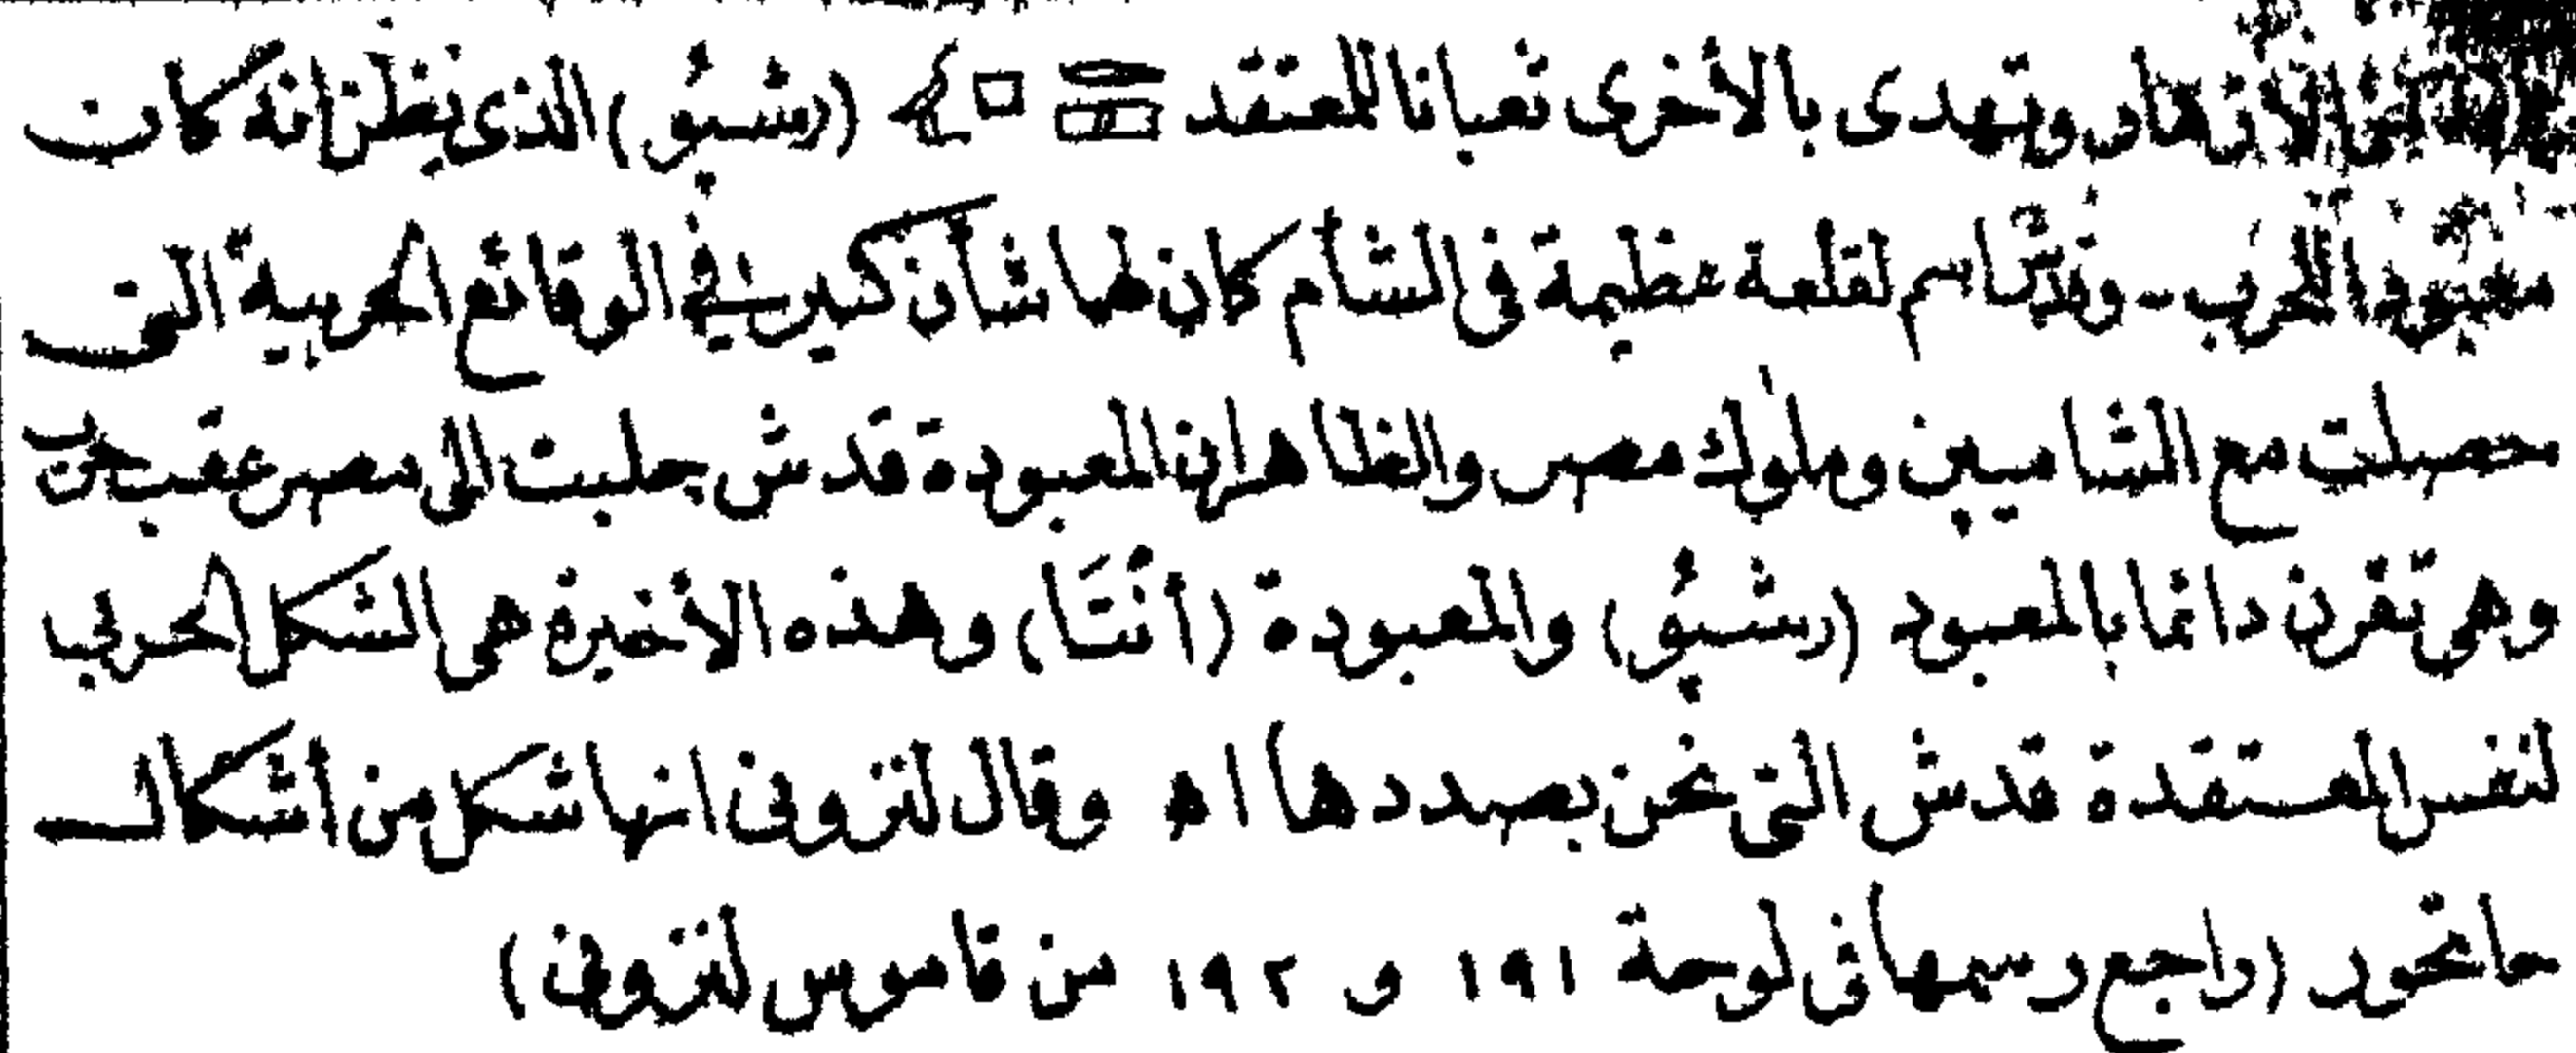 الازهار وتهدى بالأخرى ثعبانا للمعتقد (رشپُو) الذى يظن انه كان
معبودا للحرب - وقدش اسم لقلعة عظيمة فى الشأم كان لها شأن كبير فى الوقائع الحربية التى
حصلت مع الشاميين وملوك مصر والظاهر ان المعبودة قدش جلبت الى مصر عقب حرب
وهى تقرن دائما بالمعبود (رشپُو) والمعبودة (أَنْتَا) وهذه الأخيرة هى الشكل الحربى
لنفس المعتقدة قدش التى نحن بصددها اه وقال لنزونى انها شكل من أشكال
حاتحور (راجع رسمها فى لوحة ١٩١ و ١٩٢ من قاموس لنزونى)